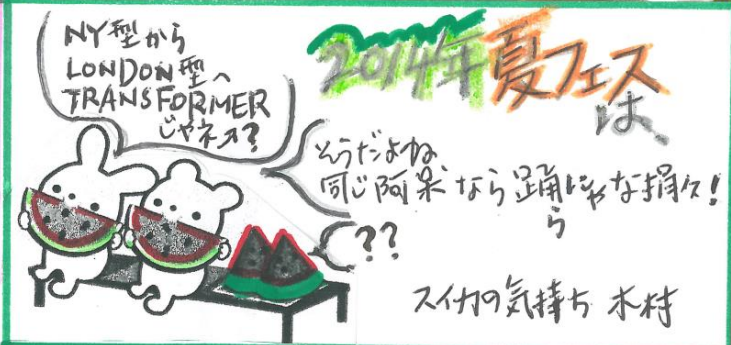 NY型から
LONDON型へ
TRANSFORMER
じゃネ?
2014年夏フェス
は、
そうだよね
同じ阿呆なら踊にゃな損々!
ら
??
スイカの気持ち 木村